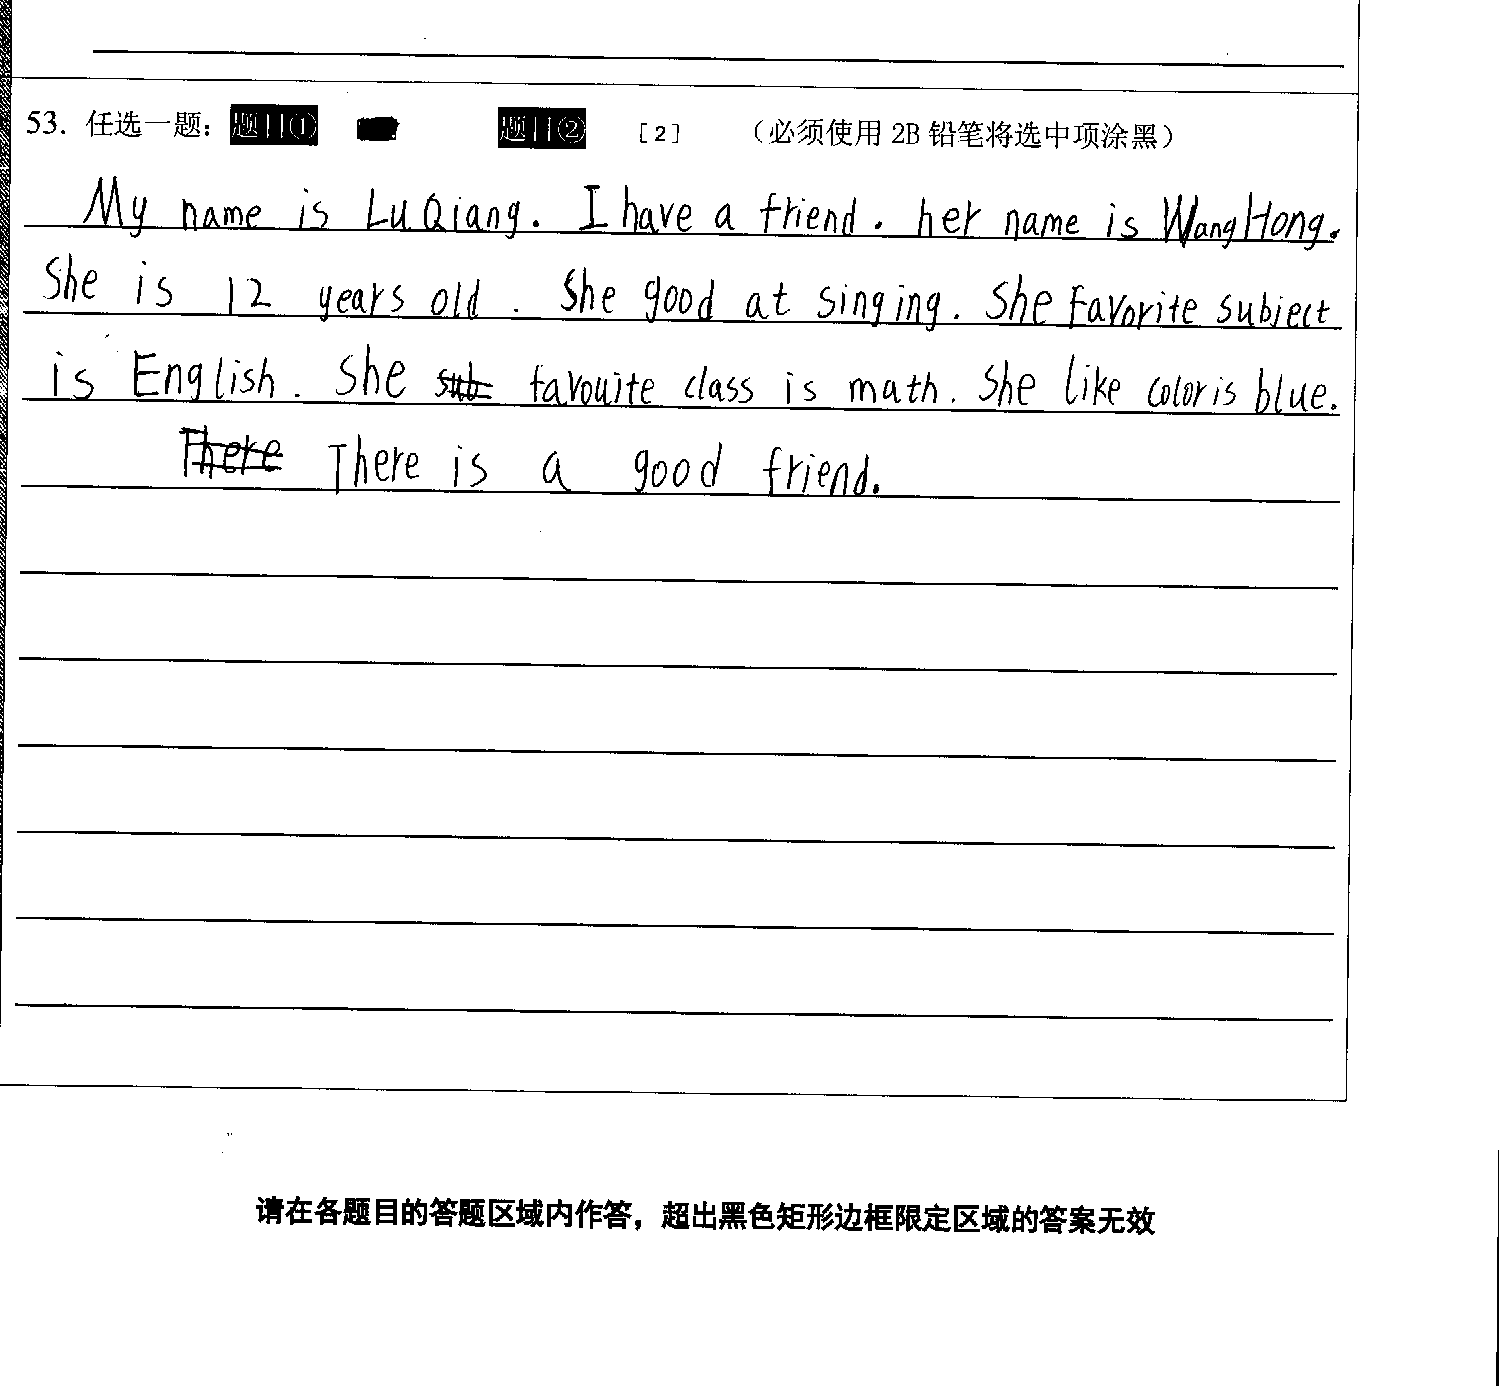 53. 任选一题: 题目① 题目② [2] （必须使用 2B 铅笔将选中项涂黑）
My name is Lu Qiang. I have a friend. her name is Wang Hong.
She is 12 years old. She good at singing. She Favorite subject
is English. She sub favouite class is math. She like color is blue.
There There is a good friend.
请在各题目的答题区域内作答，超出黑色矩形边框限定区域的答案无效